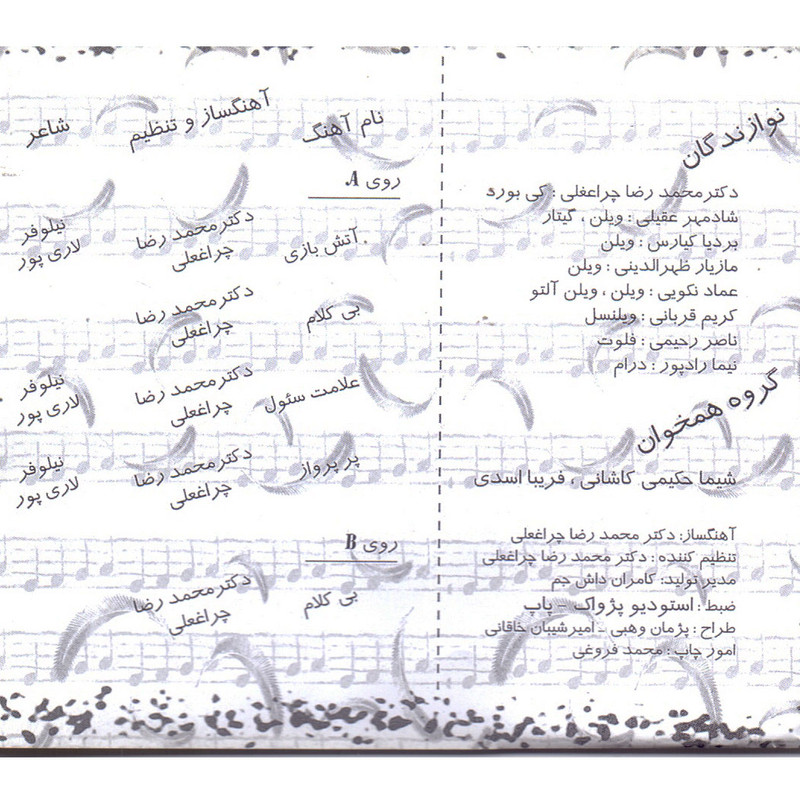 نوازندگان
دکتر محمد رضا چراغعلی : کی بورد
شادمهر عقیلی : ویلن ، گیتار
بردیا کیارس : ویلن
مازیار ظهرالدینی : ویلن
عماد نکویی : ویلن ، ویلن آلتو
کریم قربانی : ویلنسل
ناصر رحیمی : فلوت
نیما رادپور : درام
گروه همخوان
شیما حکیمی کاشانی ، فریبا اسدی
آهنگساز: دکتر محمد رضا چراغعلی
تنظیم کننده : دکتر محمد رضا چراغعلی
مدیر تولید: کامران داش جم
ضبط : استودیو پژواک - پاپ
طراح : پژمان وهبی - امیرشیبان خاقانی
امور چاپ : محمد فروغی
نام آهنگ آهنگساز و تنظیم شاعر
روی A
آتش بازی دکتر محمد رضا نیلوفر
چراغعلی لاری پور
بی کلام دکتر محمد رضا
چراغعلی
علامت سئول دکتر محمد رضا نیلوفر
چراغعلی لاری پور
پر پرواز دکتر محمد رضا نیلوفر
چراغعلی لاری پور
روی B
بی کلام دکتر محمد رضا
چراغعلی